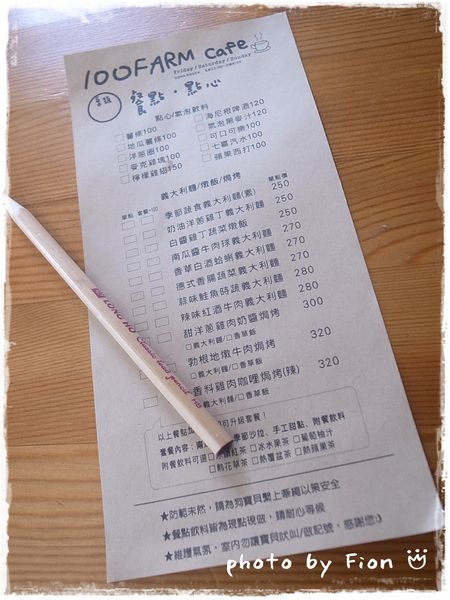 100FARM Cafe
Friday/Saturday/Sunday
桌號
餐點・點心
點心/氣泡飲料
□薯條100 □海尼根啤酒120
□地瓜薯條100 □氣泡黑麥汁120
□洋蔥圈100 □可口可樂100
□麥克雞塊100 □七喜汽水100
□檸檬雞翅150 □蘋果西打100
義大利麵/燉飯/焗烤
單點 套餐+100 單點價
季節蔬食義大利麵(素) 250
奶油洋蔥雞丁義大利麵 250
白醬雞丁蔬菜燉飯 250
南瓜醬牛肉球義大利麵 270
香草白酒蛤蜊義大利麵 270
德式香腸蔬菜義大利麵 270
蒜味鮭魚時蔬義大利麵 280
辣味紅酒牛肉義大利麵 280
甜洋蔥雞肉奶醬焗烤 300
□義大利麵/□香草飯
勃根地燉牛肉焗烤 320
□義大利麵/□香草飯
香料雞肉咖哩焗烤(辣) 320
□義大利麵/□香草飯
以上餐點 可升級套餐!
套餐內容: 季節沙拉、手工甜點、附餐飲料
附餐飲料可選 紅茶 □冰水果茶 □葡萄柚汁
□熱花草茶 □熱覆盆茶 □熱蘋果茶
★防範未然,請為狗寶貝繫上牽繩以策安全
★餐點飲料皆為現點現做,請耐心等候
★維護氣氛,室內勿讓寶貝吠叫/做記號,感謝您:)
photo by Fion